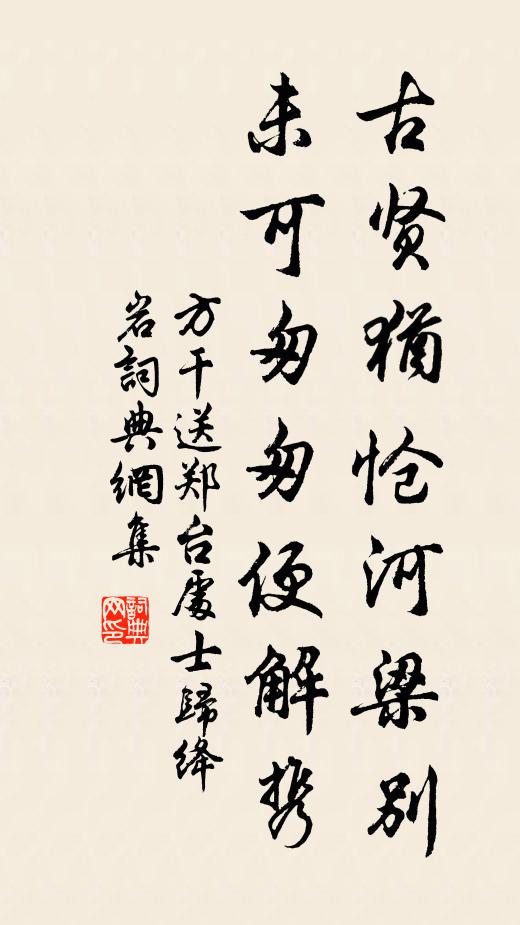 古贤犹怆河梁别
未可匆匆便解携
方干送郑台處士歸绛
岩詞典網集
詞典网印